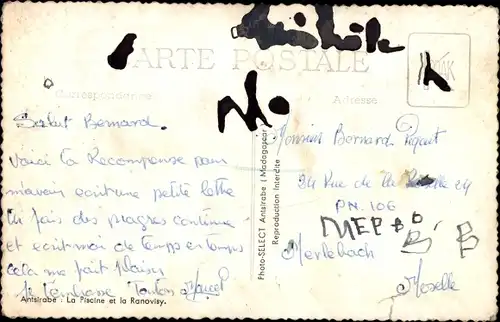 CARTE POSTALE
Correspondance
Adresse
Salut Bernard.
Voici la Recompense pour
m'avoir ecrit une petite lettre
tu fais des progres continue
et ecrit moi de temps en temps
cela me fait plaisir
Je t'embrasse Tonton Marcel
Antsirabe : La Piscine et la Ranovisy.
Photo-SELECT Antsirabe (Madagascar)
Reproduction Interdite
No
Monsieur Bernard
24 Rue de la 24
PN. 106
Merlebach
Moselle